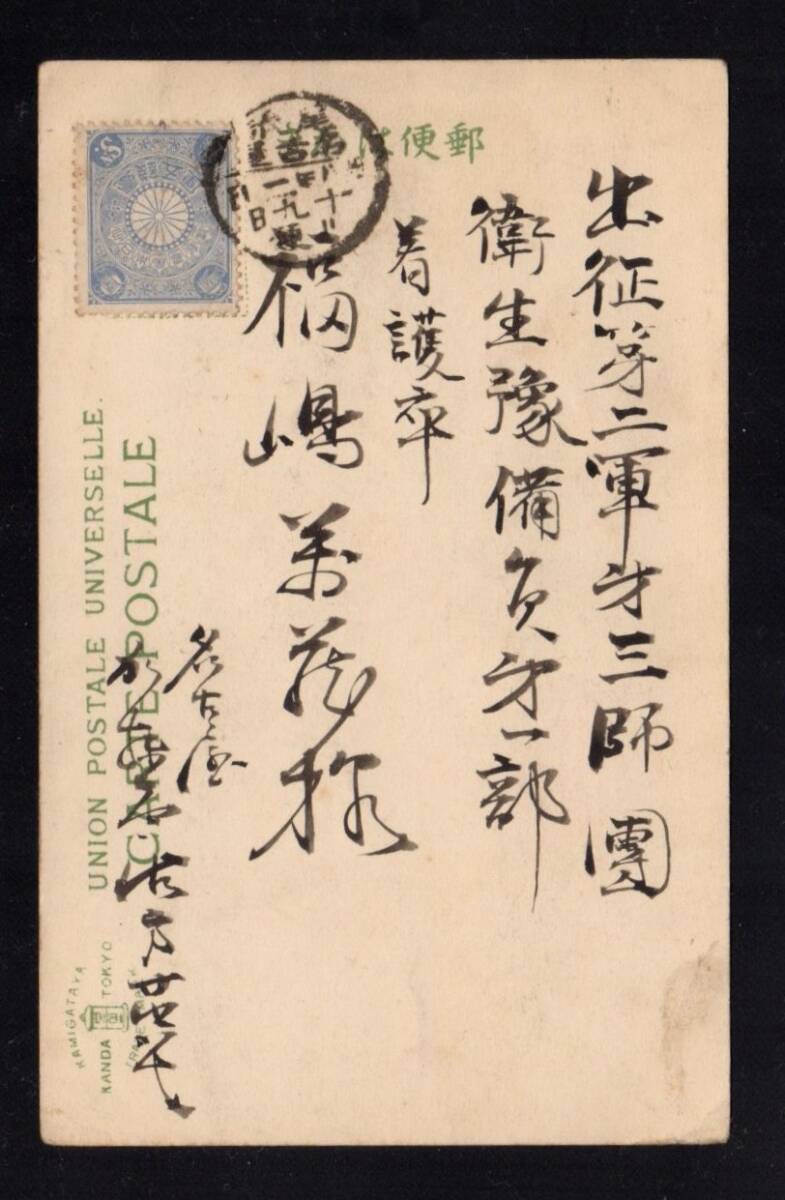 郵便はがき
出征第二軍第三師團
衛生豫備員第一部
看護卒
福嶋萬蔵様
名古屋
UNION POSTALE UNIVERSELLE.
CARTE POSTALE
KAMIGATAYA
KANDA TOKYO
TRADE MARK